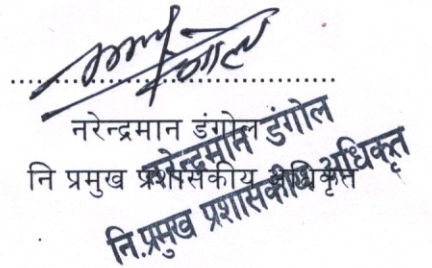 नरेन्द्रमान डंगोल
नि प्रमुख प्रशासकीय अधिकृत
नरेन्द्रमान डंगोल
नि.प्रमुख प्रशासकीय अधिकृत